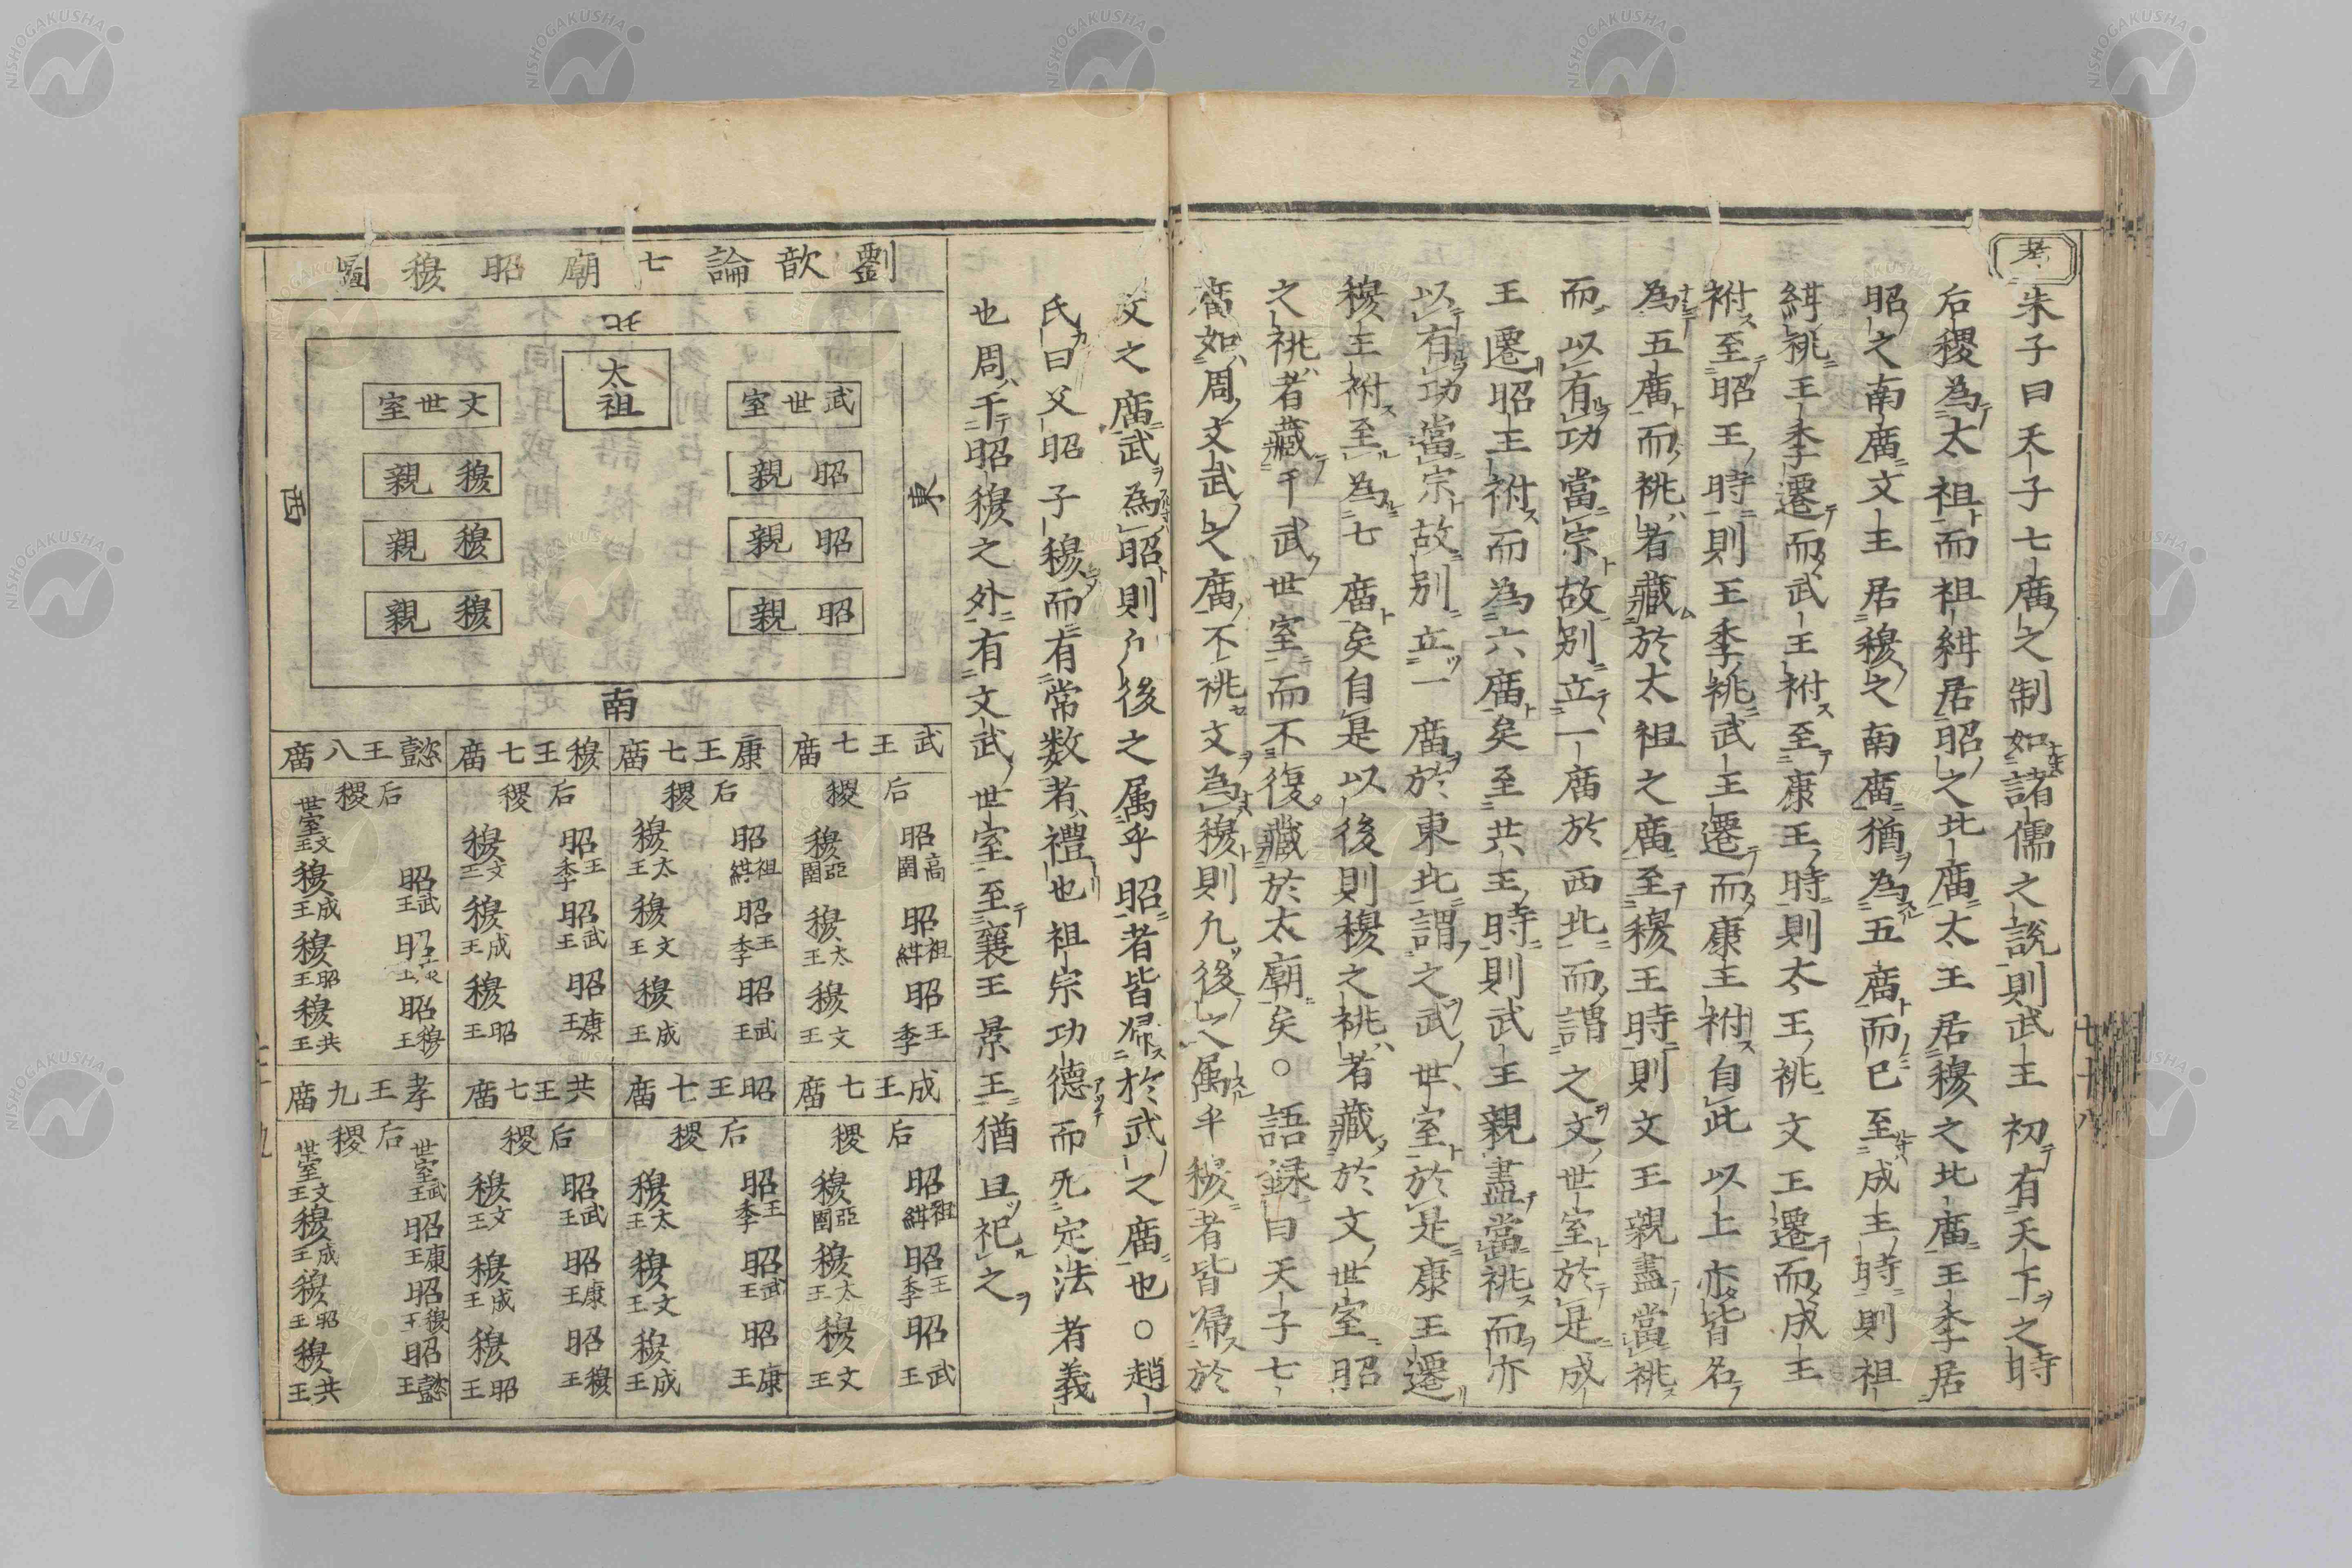 考
朱子曰天子七庿之制如諸儒之說則武王初有天下之時
后稷為太祖而祖紺居昭之北庿太王居穆之北庿王季居
昭之南庿文王居穆之南庿猶為五庿而已至成王時則祖
紺祧王季遷而武王祔至康王時則太王祧文王遷而成王
祔至昭王時則王季祧武王遷而康王祔自此以上亦皆名
為五庿而祧者藏於太祖之庿至穆王時則文王親盡當祧
而以有功當宗故別立一庿於西北而謂之文世室於是成
王遷昭王祔而為六庿矣至共王時則武王親盡當祧而亦
以有功當宗故別立一庿於東北謂之武世室於是康王遷
穆王祔至為七庿矣自是以後則穆之祧者藏於文世室昭
之祧者藏于武世室而不復藏於太廟矣○語録曰天子七
庿如周文武之庿不祧文為穆則凢後之属乎穆者皆㱕於
七十八
文之庿武為昭則凢後之属乎昭者皆㱕於武之庿也○趙
氏曰父昭子穆而有常数者禮也祖宗功德而无定法者義
也周于昭穆之外有文武世室至襄王景王猶且祀之
劉歆論七廟昭穆圖
北
太祖
武世室
文世室
昭親
穆親
昭親
穆親
昭親
穆親
東
西
南
武王七庿
后稷
昭高圉
昭祖紺
昭王季
穆亞圉
穆太王
穆文王
康王七庿
后稷
昭祖紺
昭王季
昭武王
穆太王
穆文王
穆成王
穆王七庿
后稷
昭王季
昭武王
昭康王
穆文王
穆成王
穆昭王
懿王八庿
后稷
昭武王
昭康王
昭穆王
世室文王
穆成王
穆昭王
穆共王
成王七庿
后稷
昭祖紺
昭王季
昭武王
穆亞圉
穆太王
穆文王
昭王七庿
后稷
昭王季
昭武王
昭康王
穆太王
穆文王
穆成王
共王七庿
后稷
昭武王
昭康王
昭穆王
穆文王
穆成王
穆昭王
孝王九庿
后稷
世室武王
昭康王
昭穆王
昭懿王
世室文王
穆成王
穆昭王
穆共王
NISHOGAKUSHA